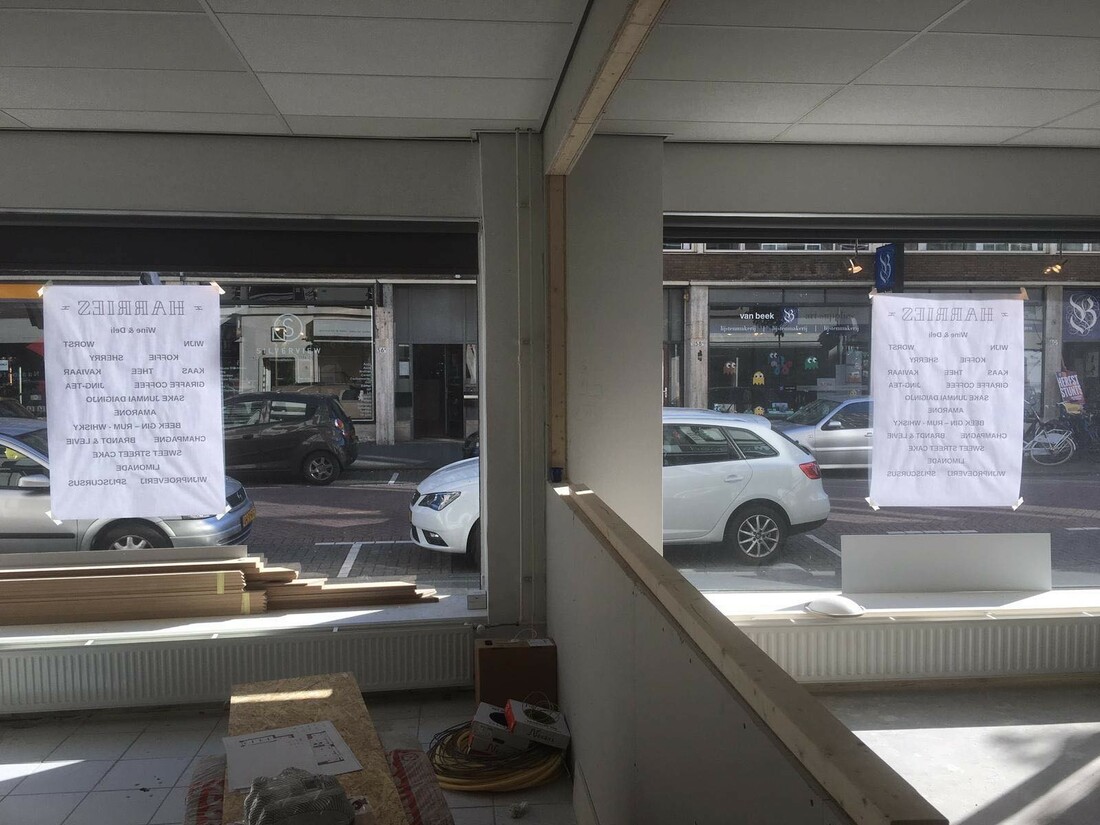 HARRIES
Wine & Deli
WIJN WORST
KOFFIE SHERRY
KAAS THEE KAVIAAR
GIRAFFE COFFEE JING-TEA
SAKE JUNMAI DAIGINJO
AMARONE
BEEK GIN – RUM - WHISKY
CHAMPAGNE BRANDT & LEVIE
SWEET STREET CAKE
LIMONADE
WIJNPROEVERIJ SPIJSCURSUS
S
SILVERVIEW
van beek
lijstenmakerij
HARRIES
Wine & Deli
WIJN WORST
KOFFIE SHERRY
KAAS THEE KAVIAAR
GIRAFFE COFFEE JING-TEA
SAKE JUNMAI DAIGINJO
AMARONE
BEEK GIN – RUM - WHISKY
CHAMPAGNE BRANDT & LEVIE
SWEET STREET CAKE
LIMONADE
WIJNPROEVERIJ SPIJSCURSUS